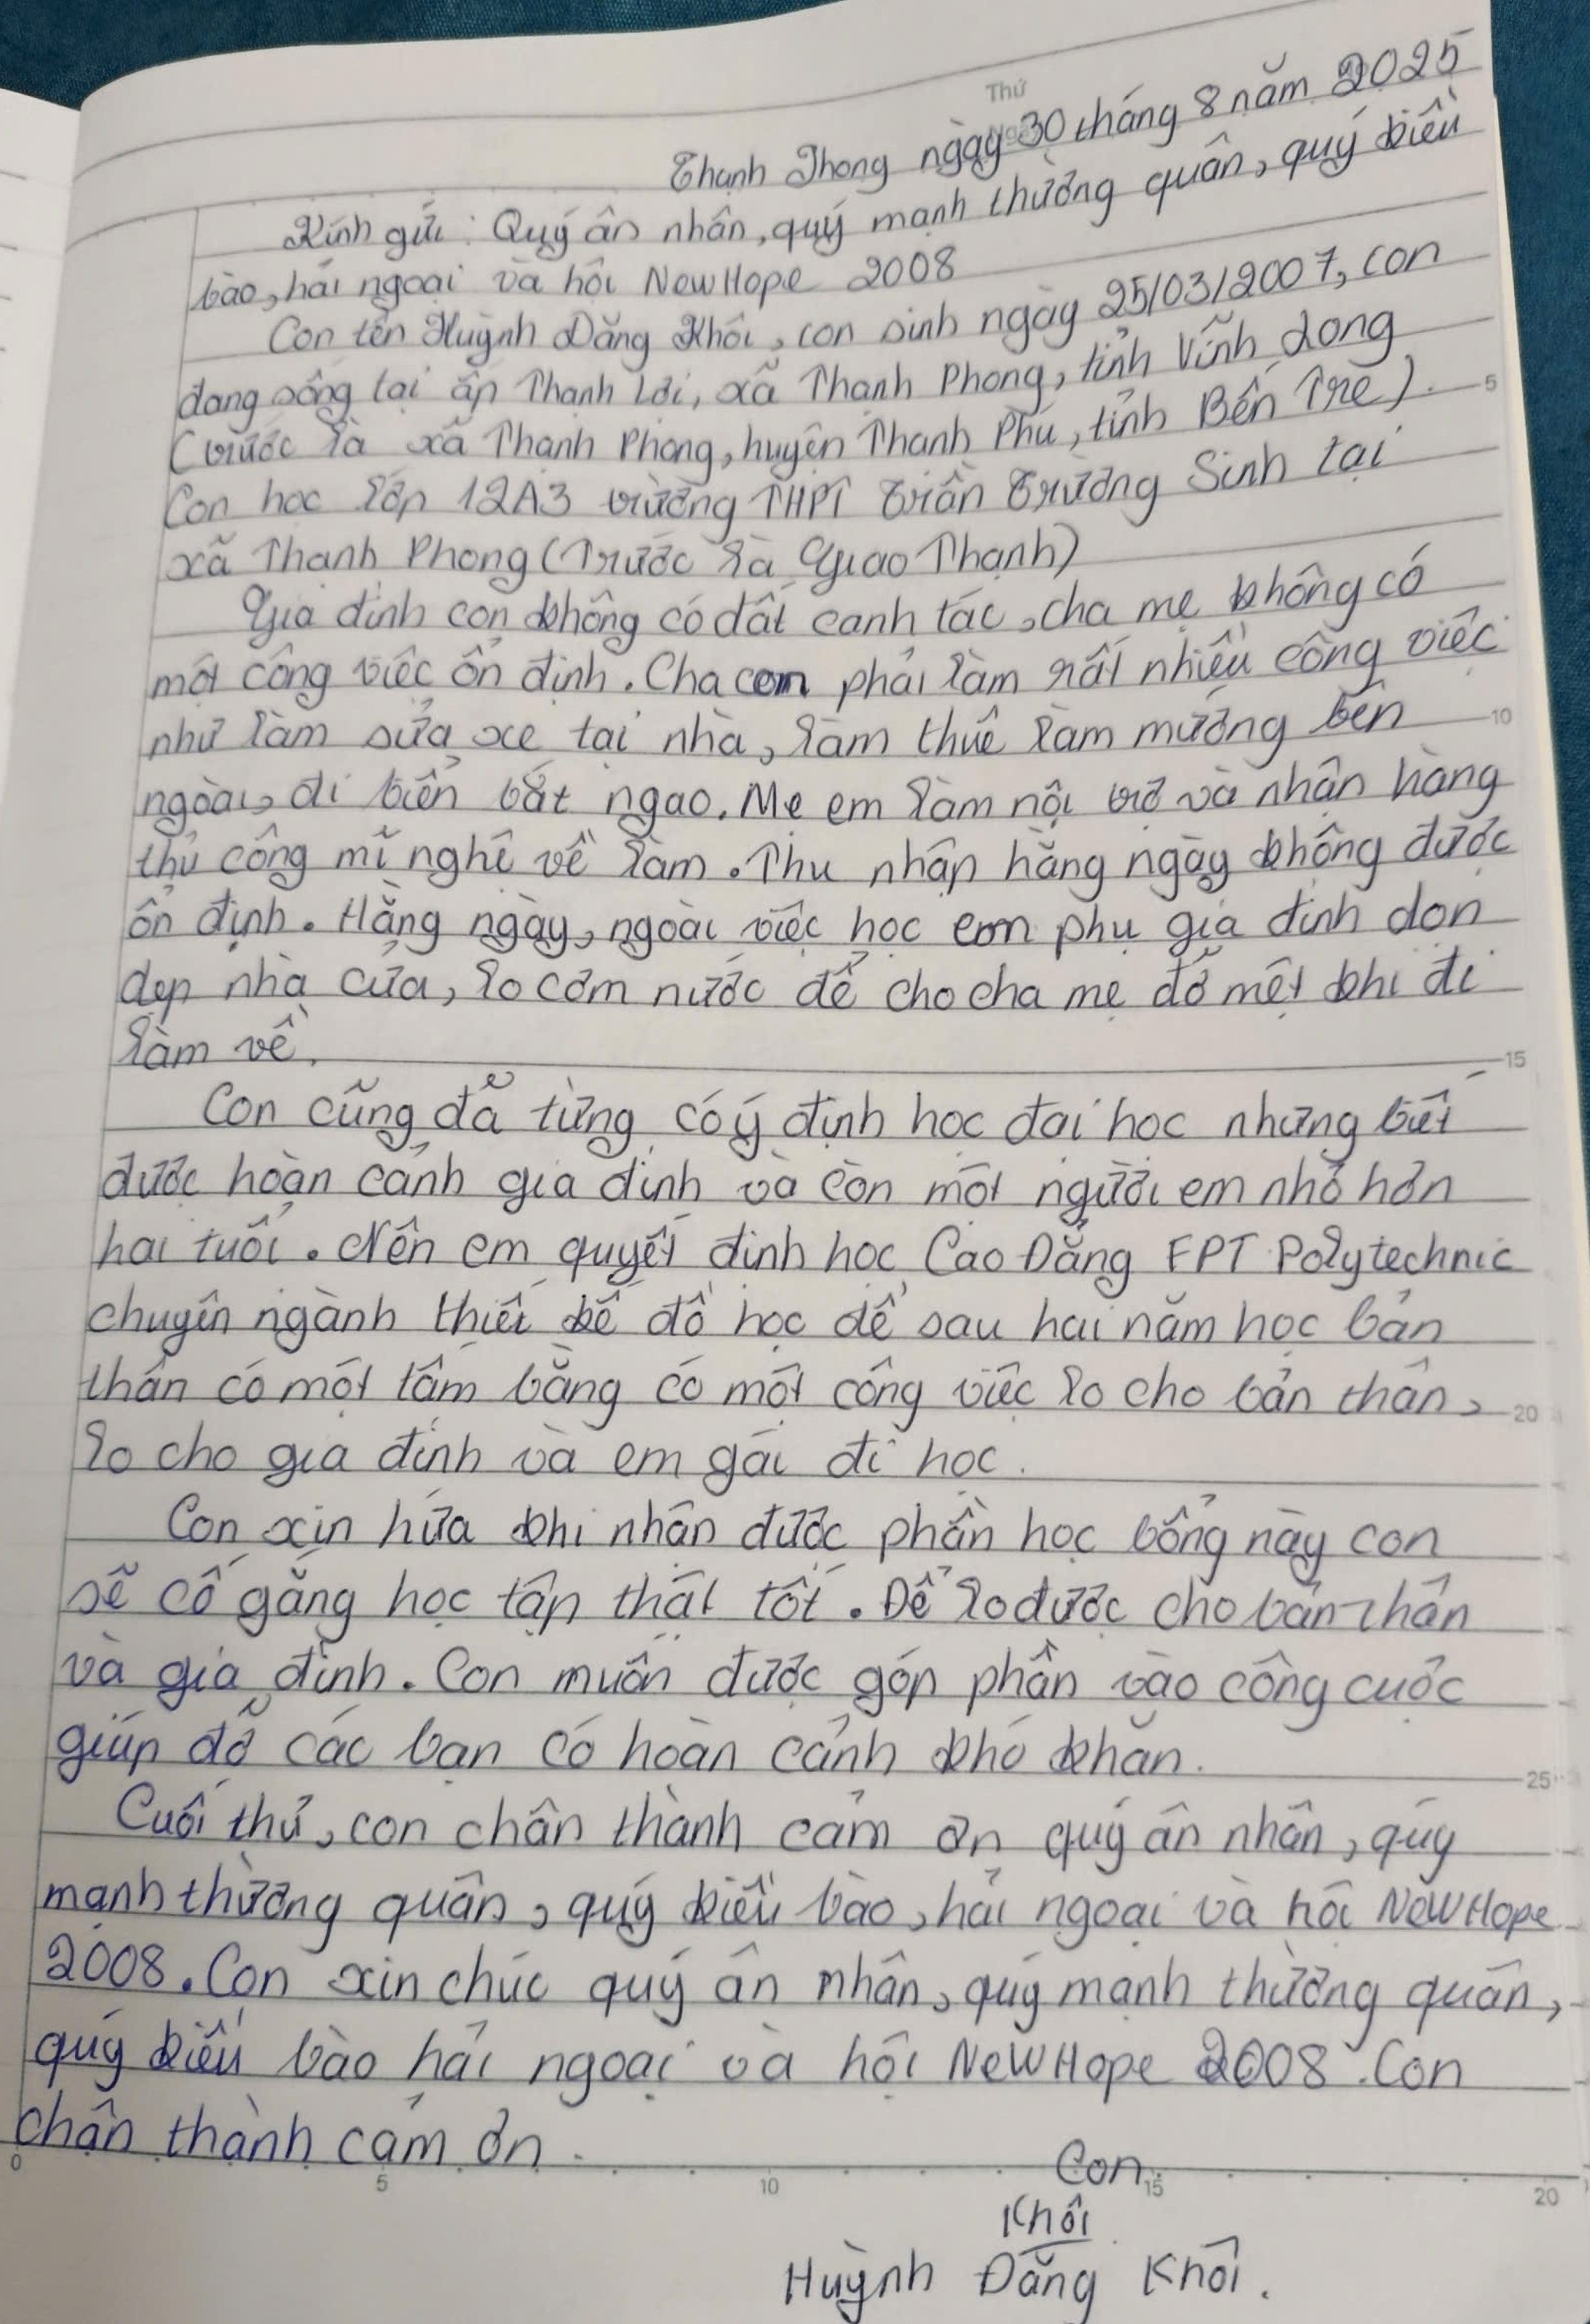 Thứ
Thạnh Phong ngày 30 tháng 8 năm 2025
Kính gửi: Quý ân nhân, quý mạnh thường quân, quý kiều
bào, hải ngoại và hội NewHope 2008
Con tên Huỳnh Đăng Khôi, con sinh ngày 25/03/2007, con
đang sống tại ấp Thạnh Lợi, xã Thạnh Phong, tỉnh Vĩnh Long
(trước là xã Thạnh Phong, huyện Thạnh Phú, tỉnh Bến Tre).
5
Con học lớp 12A3 trường THPT Trần Trường Sinh tại
xã Thạnh Phong (Trước là Giao Thạnh)
Gia đình con không có đất canh tác, cha mẹ không có
một công việc ổn định. Cha con phải làm rất nhiều công việc
như làm sửa xe tại nhà, làm thuê làm mướng bên
10
ngoài, đi biển bắt ngao. Mẹ em làm nội trợ và nhận hàng
thủ công mĩ nghệ về làm. Thu nhập hằng ngày không được
ổn định. Hằng ngày, ngoài việc học em phụ gia đình dọn
dẹp nhà cửa, lo cơm nước để cho cha mẹ đỡ mệt khi đi
làm về.
15
Con cũng đã từng có ý định học đại học nhưng biết
được hoàn cảnh gia đình và còn một người em nhỏ hơn
hai tuổi. Nên em quyết định học Cao Đẳng FPT Polytechnic
chuyên ngành thiết kế đồ học để sau hai năm học bản
thân có một tấm bằng có một công việc lo cho bản thân,
20
lo cho gia đình và em gái đi học.
Con xin hứa khi nhận được phần học bổng này con
sẽ cố gắng học tập thật tốt. Để lo được cho bản thân
và gia đình. Con muốn được góp phần vào công cuộc
giúp đỡ các bạn có hoàn cảnh khó khăn.
25
Cuối thư, con chân thành cảm ơn quý ân nhân, quý
mạnh thường quân, quý kiều bào, hải ngoại và hội NewHope
2008. Con xin chúc quý ân nhân, quý mạnh thường quân,
quý kiều bào hải ngoại và hội NewHope 2008. Con
chân thành cảm ơn.
0 5 10 15 20
Con.
Khôi
Huỳnh Đăng Khôi.